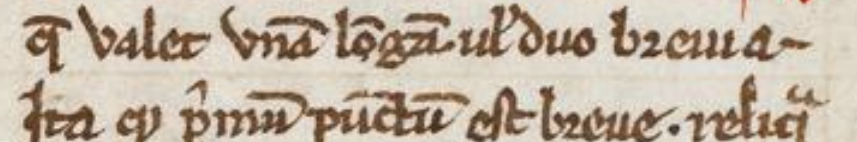 qꝫ valet vnā lōgā. ul̄ duo breuia-
Ita qͥ p̄mū pūctū est breue. reliqͣ